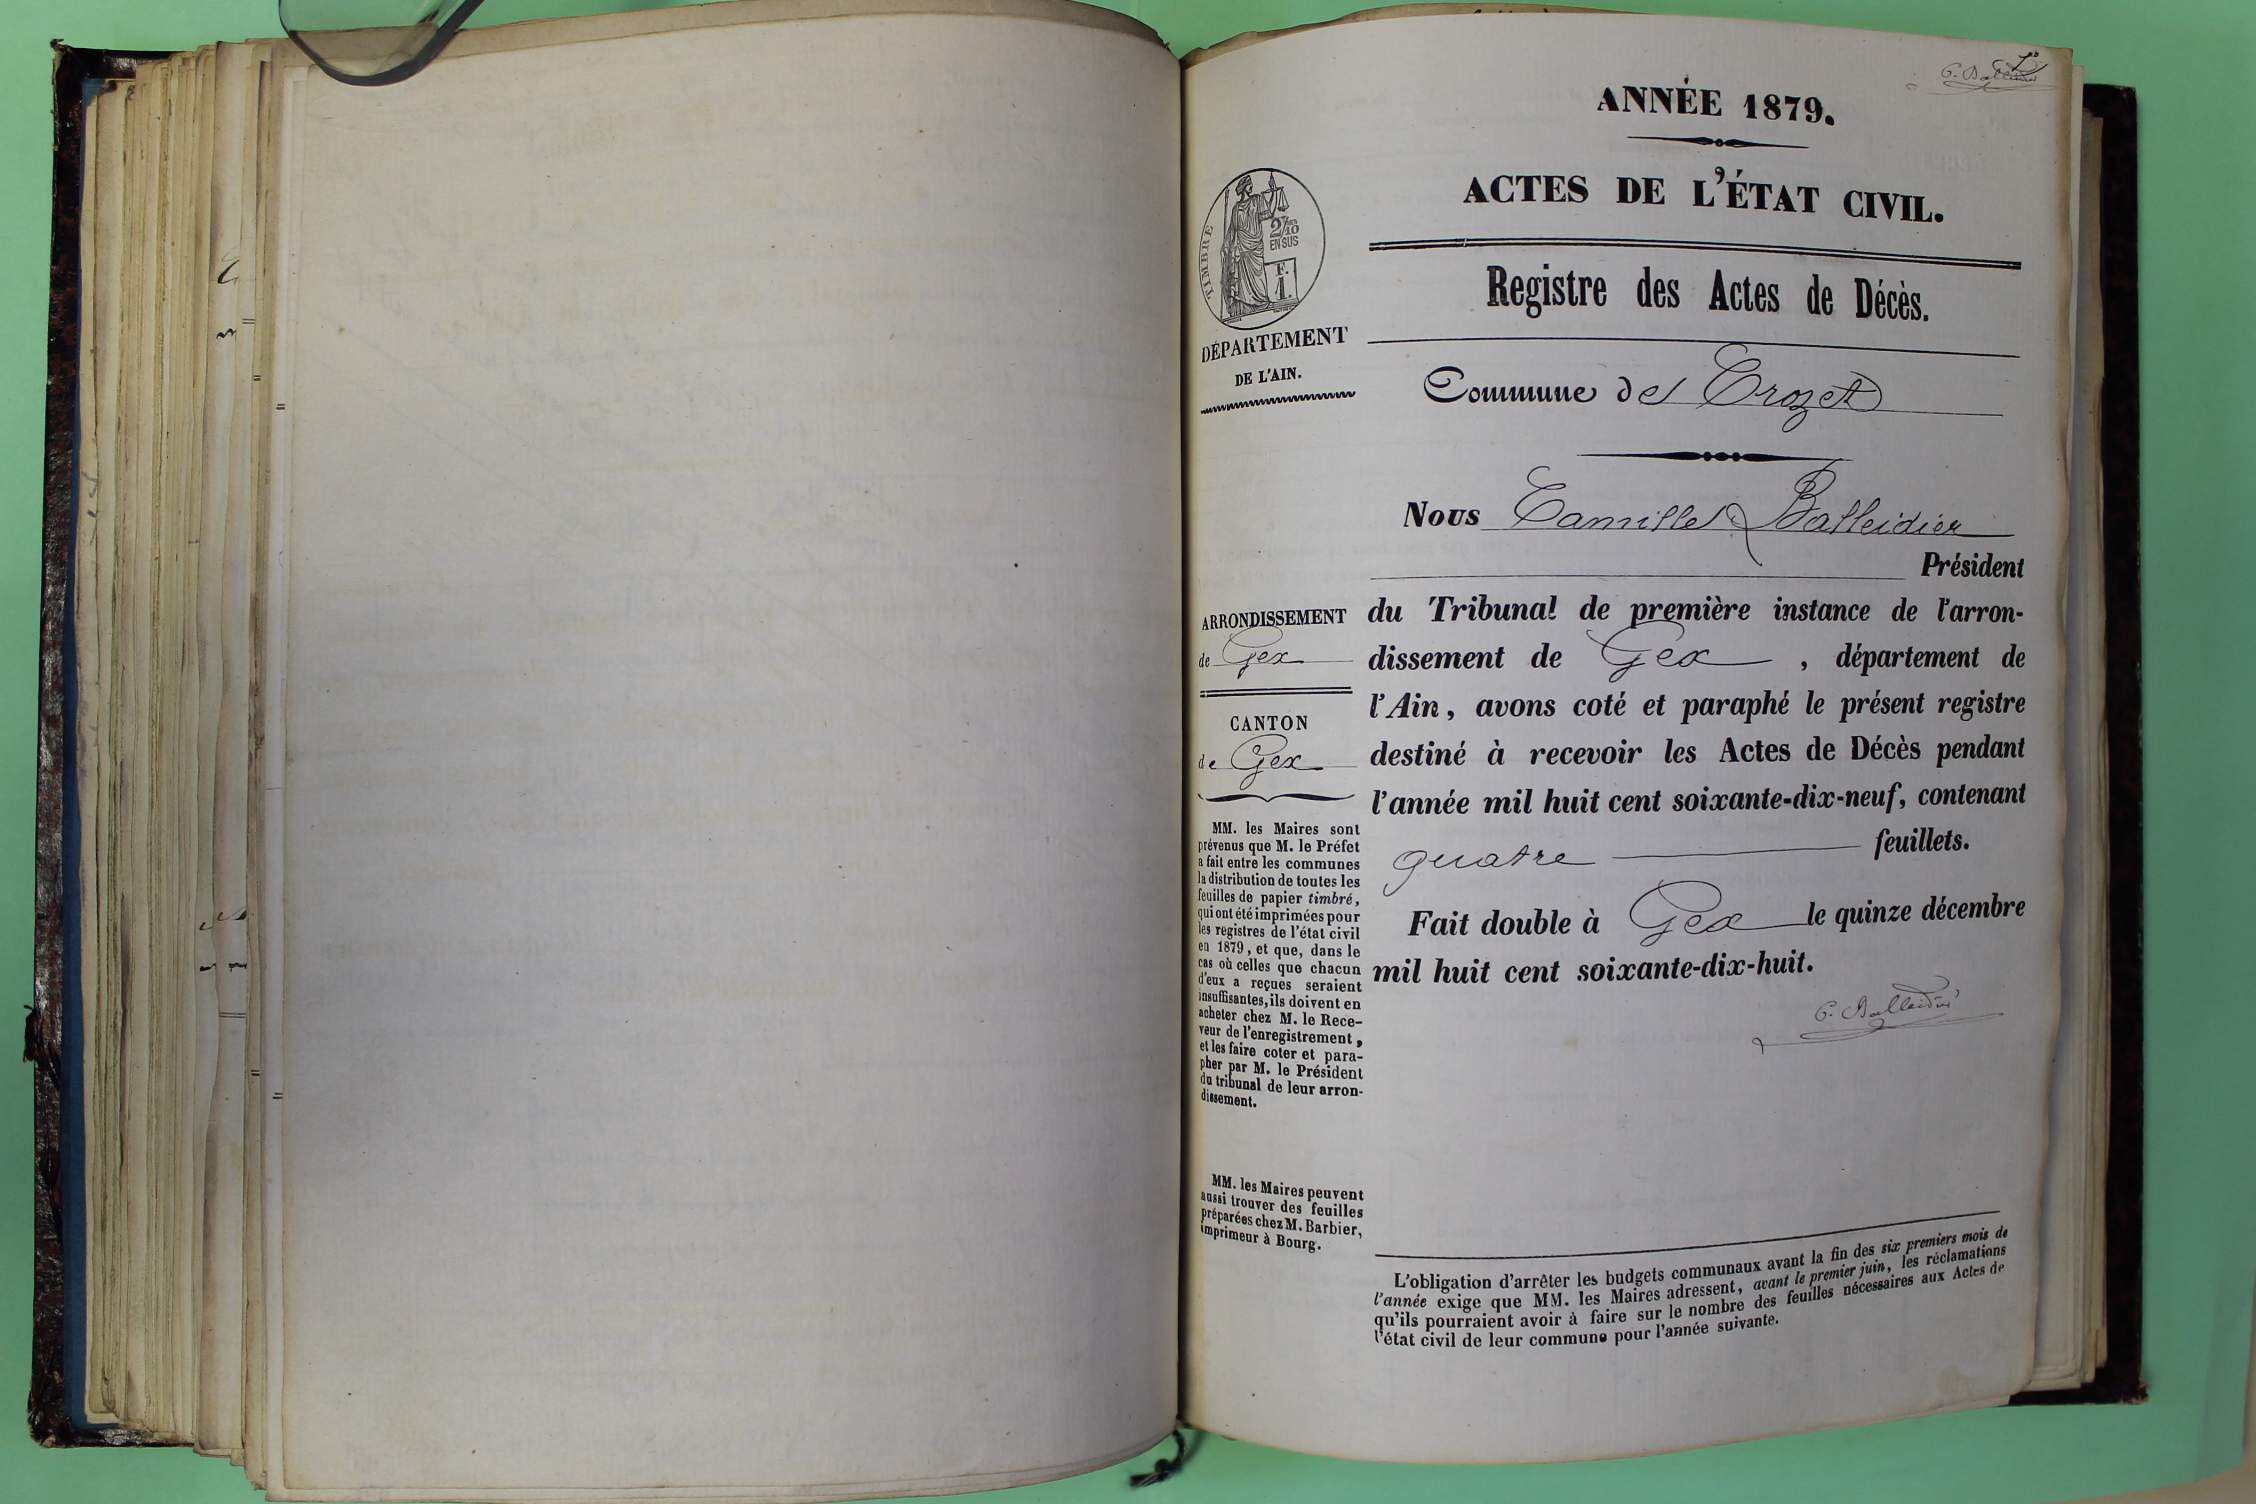 C. Balleidier
ANNÉE 1879.
ACTES DE L'ÉTAT CIVIL.
TIMBRE
2/10
EN SUS
F.
1.
Registre des Actes de Décès.
DÉPARTEMENT
DE L'AIN.
Commune de Crozet
Nous Camille Balleidier
Président
du Tribunal de première instance de l'arron-
dissement de Gex, département de
l'Ain, avons coté et paraphé le présent registre
destiné à recevoir les Actes de Décès pendant
l'année mil huit cent soixante-dix-neuf, contenant
quatre feuillets.
Fait double à Gex le quinze décembre
mil huit cent soixante-dix-huit.
C. Balleidier
ARRONDISSEMENT
de Gex
CANTON
de Gex
MM. les Maires sont
prévenus que M. le Préfet
a fait entre les communes
la distribution de toutes les
feuilles de papier timbré,
qui ont été imprimées pour
les registres de l'état civil
en 1879, et que, dans le
cas où celles que chacun
d'eux a reçues seraient
insuffisantes, ils doivent en
acheter chez M. le Rece-
veur de l'enregistrement,
et les faire coter et para-
pher par M. le Président
du tribunal de leur arron-
dissement.
MM. les Maires peuvent
aussi trouver des feuilles
préparées chez M. Barbier,
imprimeur à Bourg.
L'obligation d'arrêter les budgets communaux avant la fin des six premiers mois de
l'année exige que MM. les Maires adressent, avant le premier juin, les réclamations
qu'ils pourraient avoir à faire sur le nombre des feuilles nécessaires aux Actes de
l'état civil de leur commune pour l'année suivante.